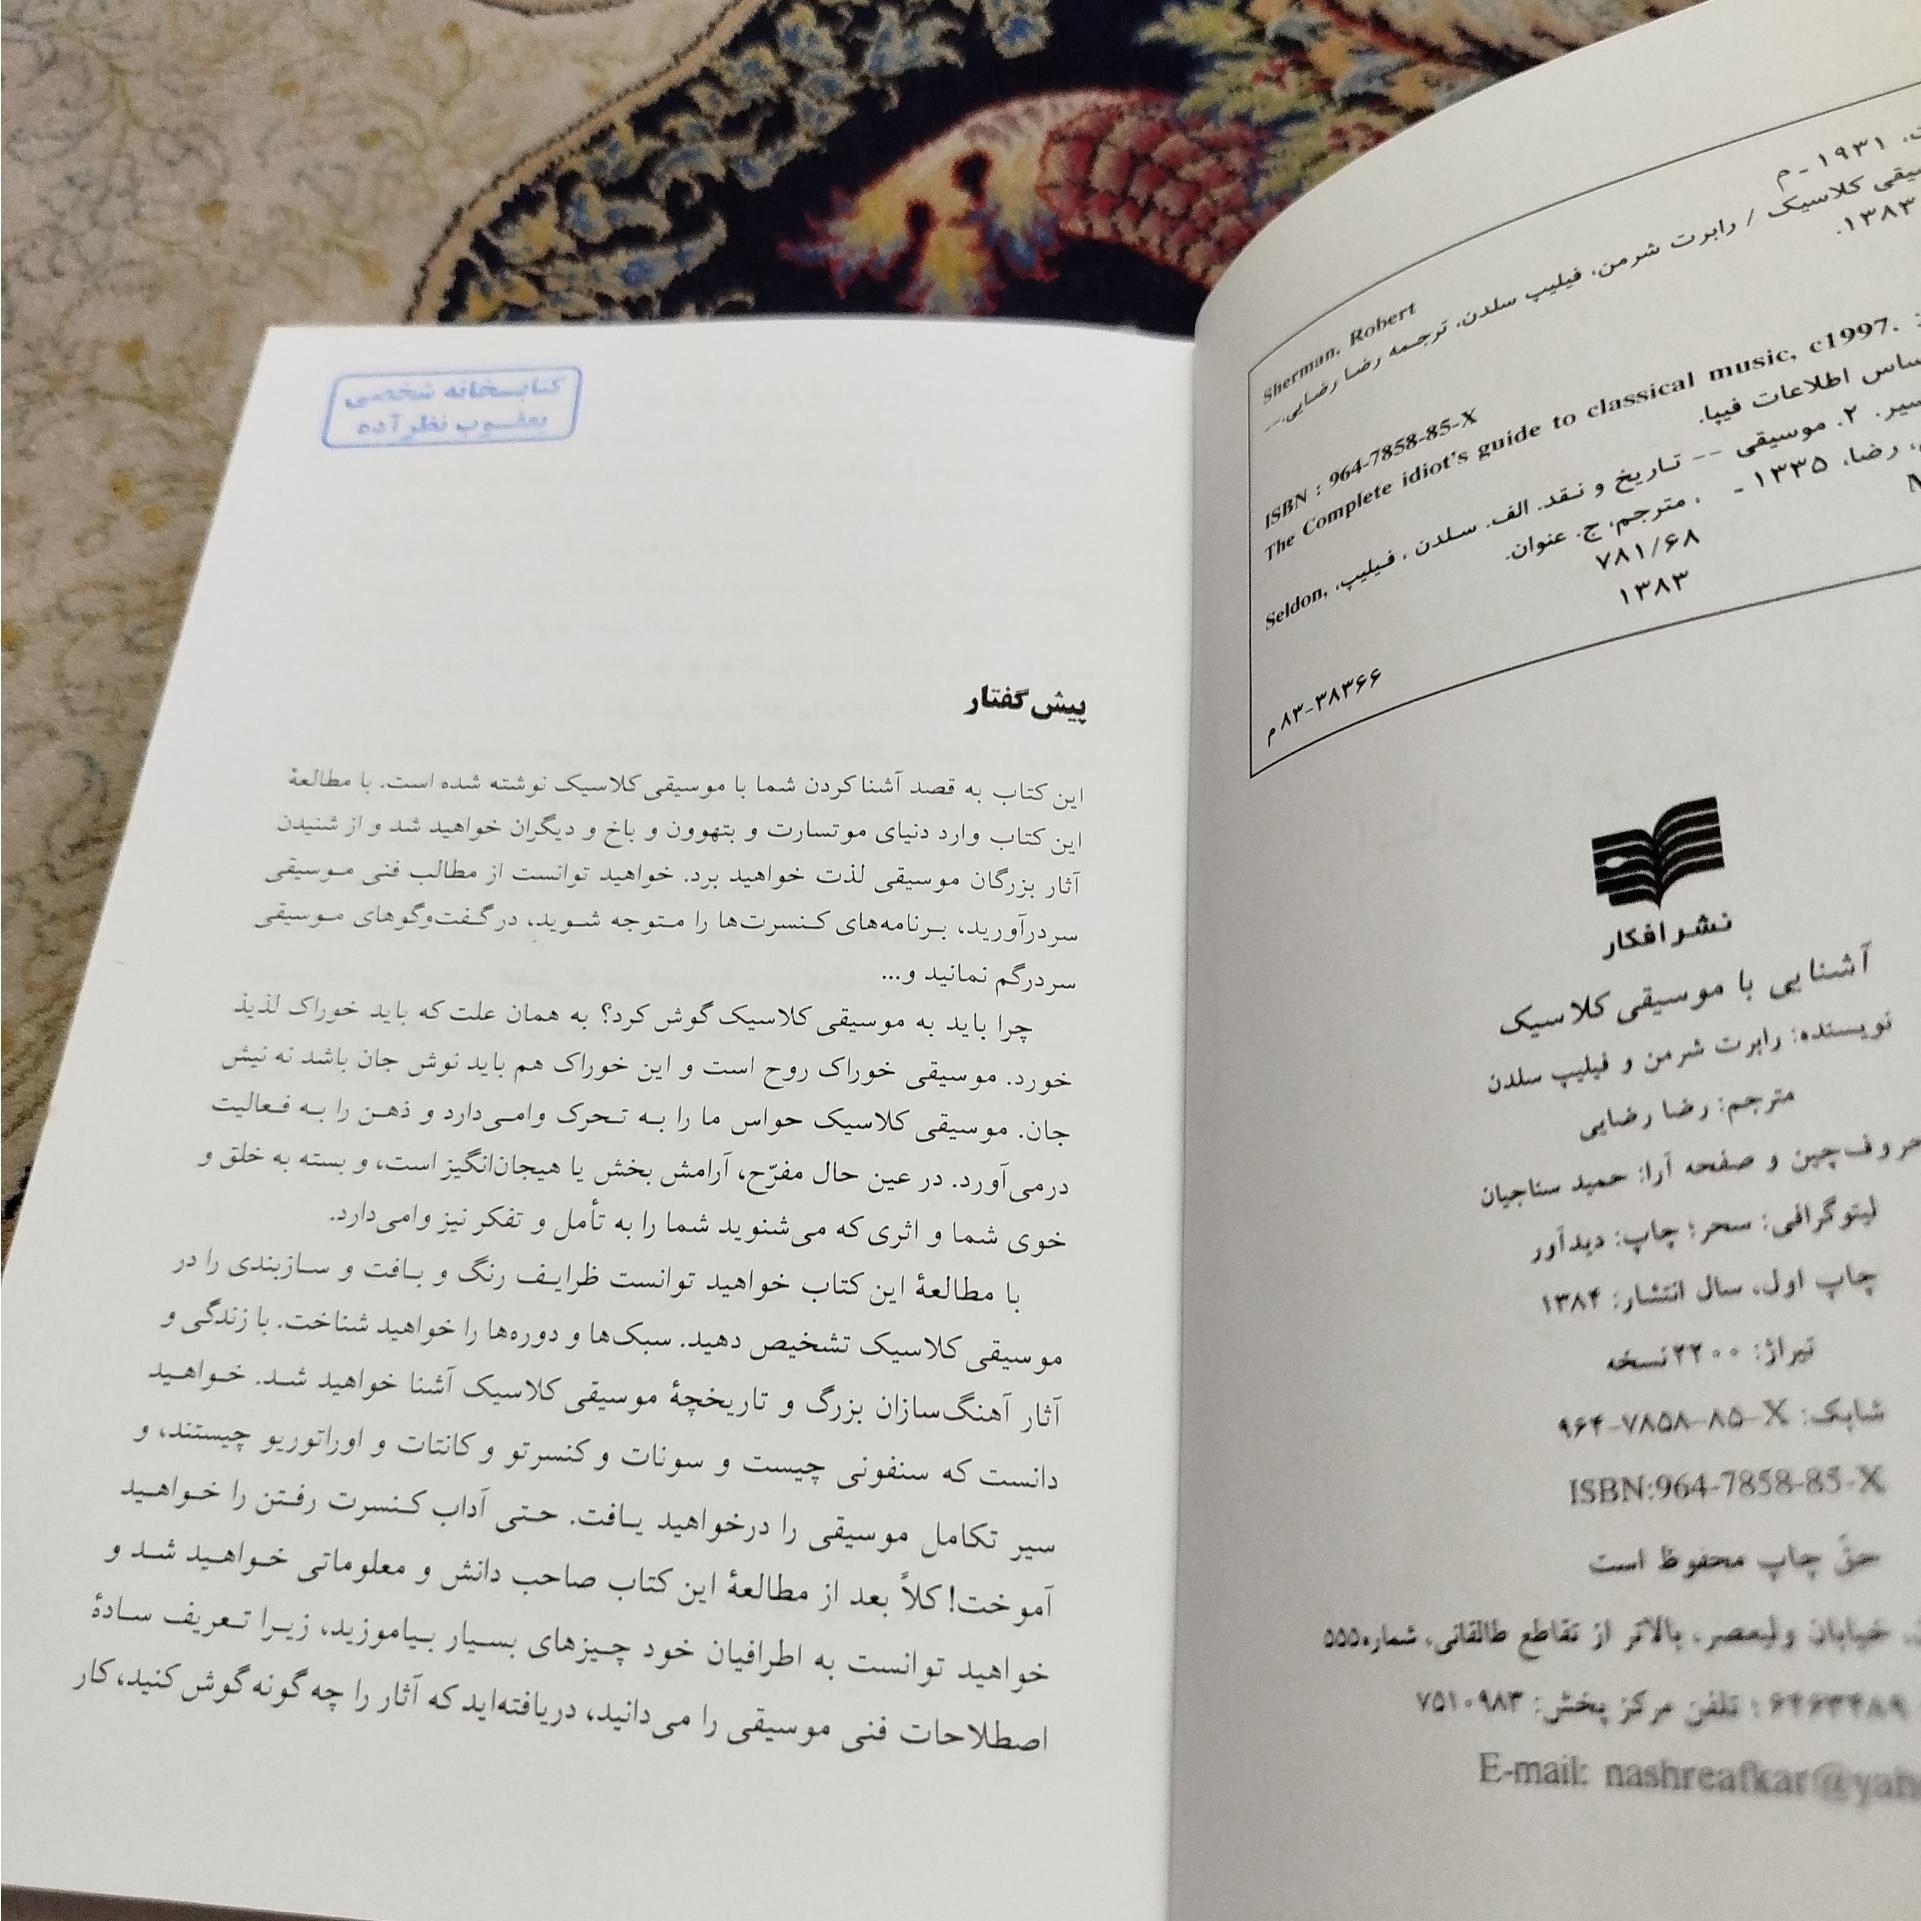 ۱۹۳۱ - م
کلاسیک / رابرت شرمن، فیلیپ سلدن، ترجمه رضا رضایی.--
۱۳۸۳.
Sherman, Robert
ISBN : 964-7858-85-X
The Complete idiot's guide to classical music, c1997.
اطلاعات فیپا.
۲. موسیقی -- تاریخ و نقد. الف. سلدن ، فیلیپ، Seldon,
رضا، ۱۳۳۵ - ، مترجم. ج. عنوان.
۷۸۱/۶۸
۱۳۸۳
۸۳-۳۸۳۶۶ م
نشر افکار
آشنایی با موسیقی کلاسیک
نویسنده: رابرت شرمن و فیلیپ سلدن
مترجم: رضا رضایی
حروف‌چین و صفحه آرا: حمید سناجیان
لیتوگرافی: سحر؛ چاپ: دیدآور
چاپ اول، سال انتشار: ۱۳۸۴
تیراژ: ۲۲۰۰ نسخه
شابک: X-۸۵-۷۸۵۸-۹۶۴
ISBN:964-7858-85-X
حقّ چاپ محفوظ است
خیابان ولیعصر، بالاتر از تقاطع طالقانی، شماره۵۵۵
۶۴۶۳۴۸۹ ؛ تلفن مرکز پخش: ۷۵۱۰۹۸۳
E-mail: nashreafkar@yah
کتابخانه شخصی
یعقوب نظرآده
پیش گفتار
این کتاب به قصد آشنا کردن شما با موسیقی کلاسیک نوشته شده است. با مطالعهٔ
این کتاب وارد دنیای موتسارت و بتهوون و باخ و دیگران خواهید شد و از شنیدن
آثار بزرگان موسیقی لذت خواهید برد. خواهید توانست از مطالب فنی موسیقی
سردرآورید، برنامه‌های کنسرت‌ها را متوجه شوید، در گفت‌وگوهای موسیقی
سردرگم نمانید و...
چرا باید به موسیقی کلاسیک گوش کرد؟ به همان علت که باید خوراک لذیذ
خورد. موسیقی خوراک روح است و این خوراک هم باید نوش جان باشد نه نیش
جان. موسیقی کلاسیک حواس ما را به تحرک وامی‌دارد و ذهن را به فعالیت
درمی‌آورد. در عین حال مفرّح، آرامش بخش یا هیجان‌انگیز است، و بسته به خلق و
خوی شما و اثری که می‌شنوید شما را به تأمل و تفکر نیز وامی‌دارد.
با مطالعهٔ این کتاب خواهید توانست ظرایف رنگ و بافت و سازبندی را در
موسیقی کلاسیک تشخیص دهید. سبک‌ها و دوره‌ها را خواهید شناخت. با زندگی و
آثار آهنگ‌سازان بزرگ و تاریخچهٔ موسیقی کلاسیک آشنا خواهید شد. خواهید
دانست که سنفونی چیست و سونات و کنسرتو و کانتات و اوراتوریو چیستند، و
سیر تکامل موسیقی را درخواهید یافت. حتی آداب کنسرت رفتن را خواهید
آموخت! کلاً بعد از مطالعهٔ این کتاب صاحب دانش و معلوماتی خواهید شد و
خواهید توانست به اطرافیان خود چیزهای بسیار بیاموزید، زیرا تعریف سادهٔ
اصطلاحات فنی موسیقی را می‌دانید، دریافته‌اید که آثار را چه گونه گوش کنید، کار